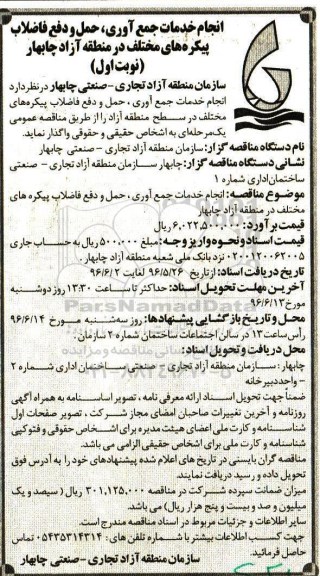 انجام خدمات جمع آوری، حمل و دفع فاضلاب
پیکره های مختلف در منطقه آزاد چابهار
(نوبت اول)
سازمان منطقه آزاد تجاری - صنعتی چابهار در نظر دارد
انجام خدمات جمع آوری، حمل و دفع فاضلاب پیکره های
مختلف در سطح منطقه آزاد را از طریق مناقصه عمومی
یک مرحله ای به اشخاص حقیقی و حقوقی واگذار نماید.
نام دستگاه مناقصه گزار: سازمان منطقه آزاد تجاری - صنعتی چابهار
نشانی دستگاه مناقصه گزار: چابهار سازمان منطقه آزاد تجاری - صنعتی
ساختمان اداری شماره ۱
موضوع مناقصه: انجام خدمات جمع آوری، حمل و دفع فاضلاب پیکره های
مختلف در منطقه آزاد چابهار
قیمت برآورد: ۶,۰۲۲,۵۰۰,۰۰۰ ریال
قیمت اسناد و نحوه واریز وجه: مبلغ ۵۰۰,۰۰۰ ریال به حساب جاری
۰۲۰۱۲۰۰۶۲۰۰۵ نزد بانک ملی شعبه منطقه آزاد چابهار.
تاریخ دریافت اسناد: از تاریخ ۹۶/۵/۲۶ لغایت ۹۶/۶/۲
آخرین مهلت تحویل اسناد: حداکثر تا ساعت ۱۳:۳۰ روز دوشنبه
مورخ ۹۶/۶/۱۳
محل و تاریخ بازگشایی پیشنهادها: روز سه شنبه مورخ ۹۶/۶/۱۴
رأس ساعت ۱۳ در سالن اجتماعات ساختمان شماره ۲ سازمان.
محل دریافت و تحویل اسناد:
چابهار: سازمان منطقه آزاد تجاری - صنعتی ساختمان اداری شماره ۲
- واحد دبیرخانه
ضمناً جهت تحویل اسناد ارائه معرفی نامه، تصویر اساسنامه به همراه آگهی
روزنامه و آخرین تغییرات صاحبان امضای مجاز شرکت، تصویر صفحات اول
شناسنامه و کارت ملی اعضای هیئت مدیره برای اشخاص حقوقی و فتوکپی
شناسنامه و کارت ملی برای اشخاص حقیقی الزامی می باشد.
مناقصه گران بایستی در تاریخ های اعلام شده پیشنهادهای خود را به آدرس فوق
تحویل داده و رسید دریافت نمایند.
میزان ضمانت سپرده شرکت در مناقصه ۳۰۱,۱۲۵,۰۰۰ ریال (سیصد و یک
میلیون و صد و بیست و پنج هزار ریال) می باشد.
سایر اطلاعات و جزئیات مربوط در اسناد مناقصه مندرج است.
جهت کسب اطلاعات بیشتر با شماره تلفن های: ۰۵۴۳۵۳۱۴۳۱۴ تماس
حاصل فرمائید.
سازمان منطقه آزاد تجاری - صنعتی چابهار
ParsNamadData